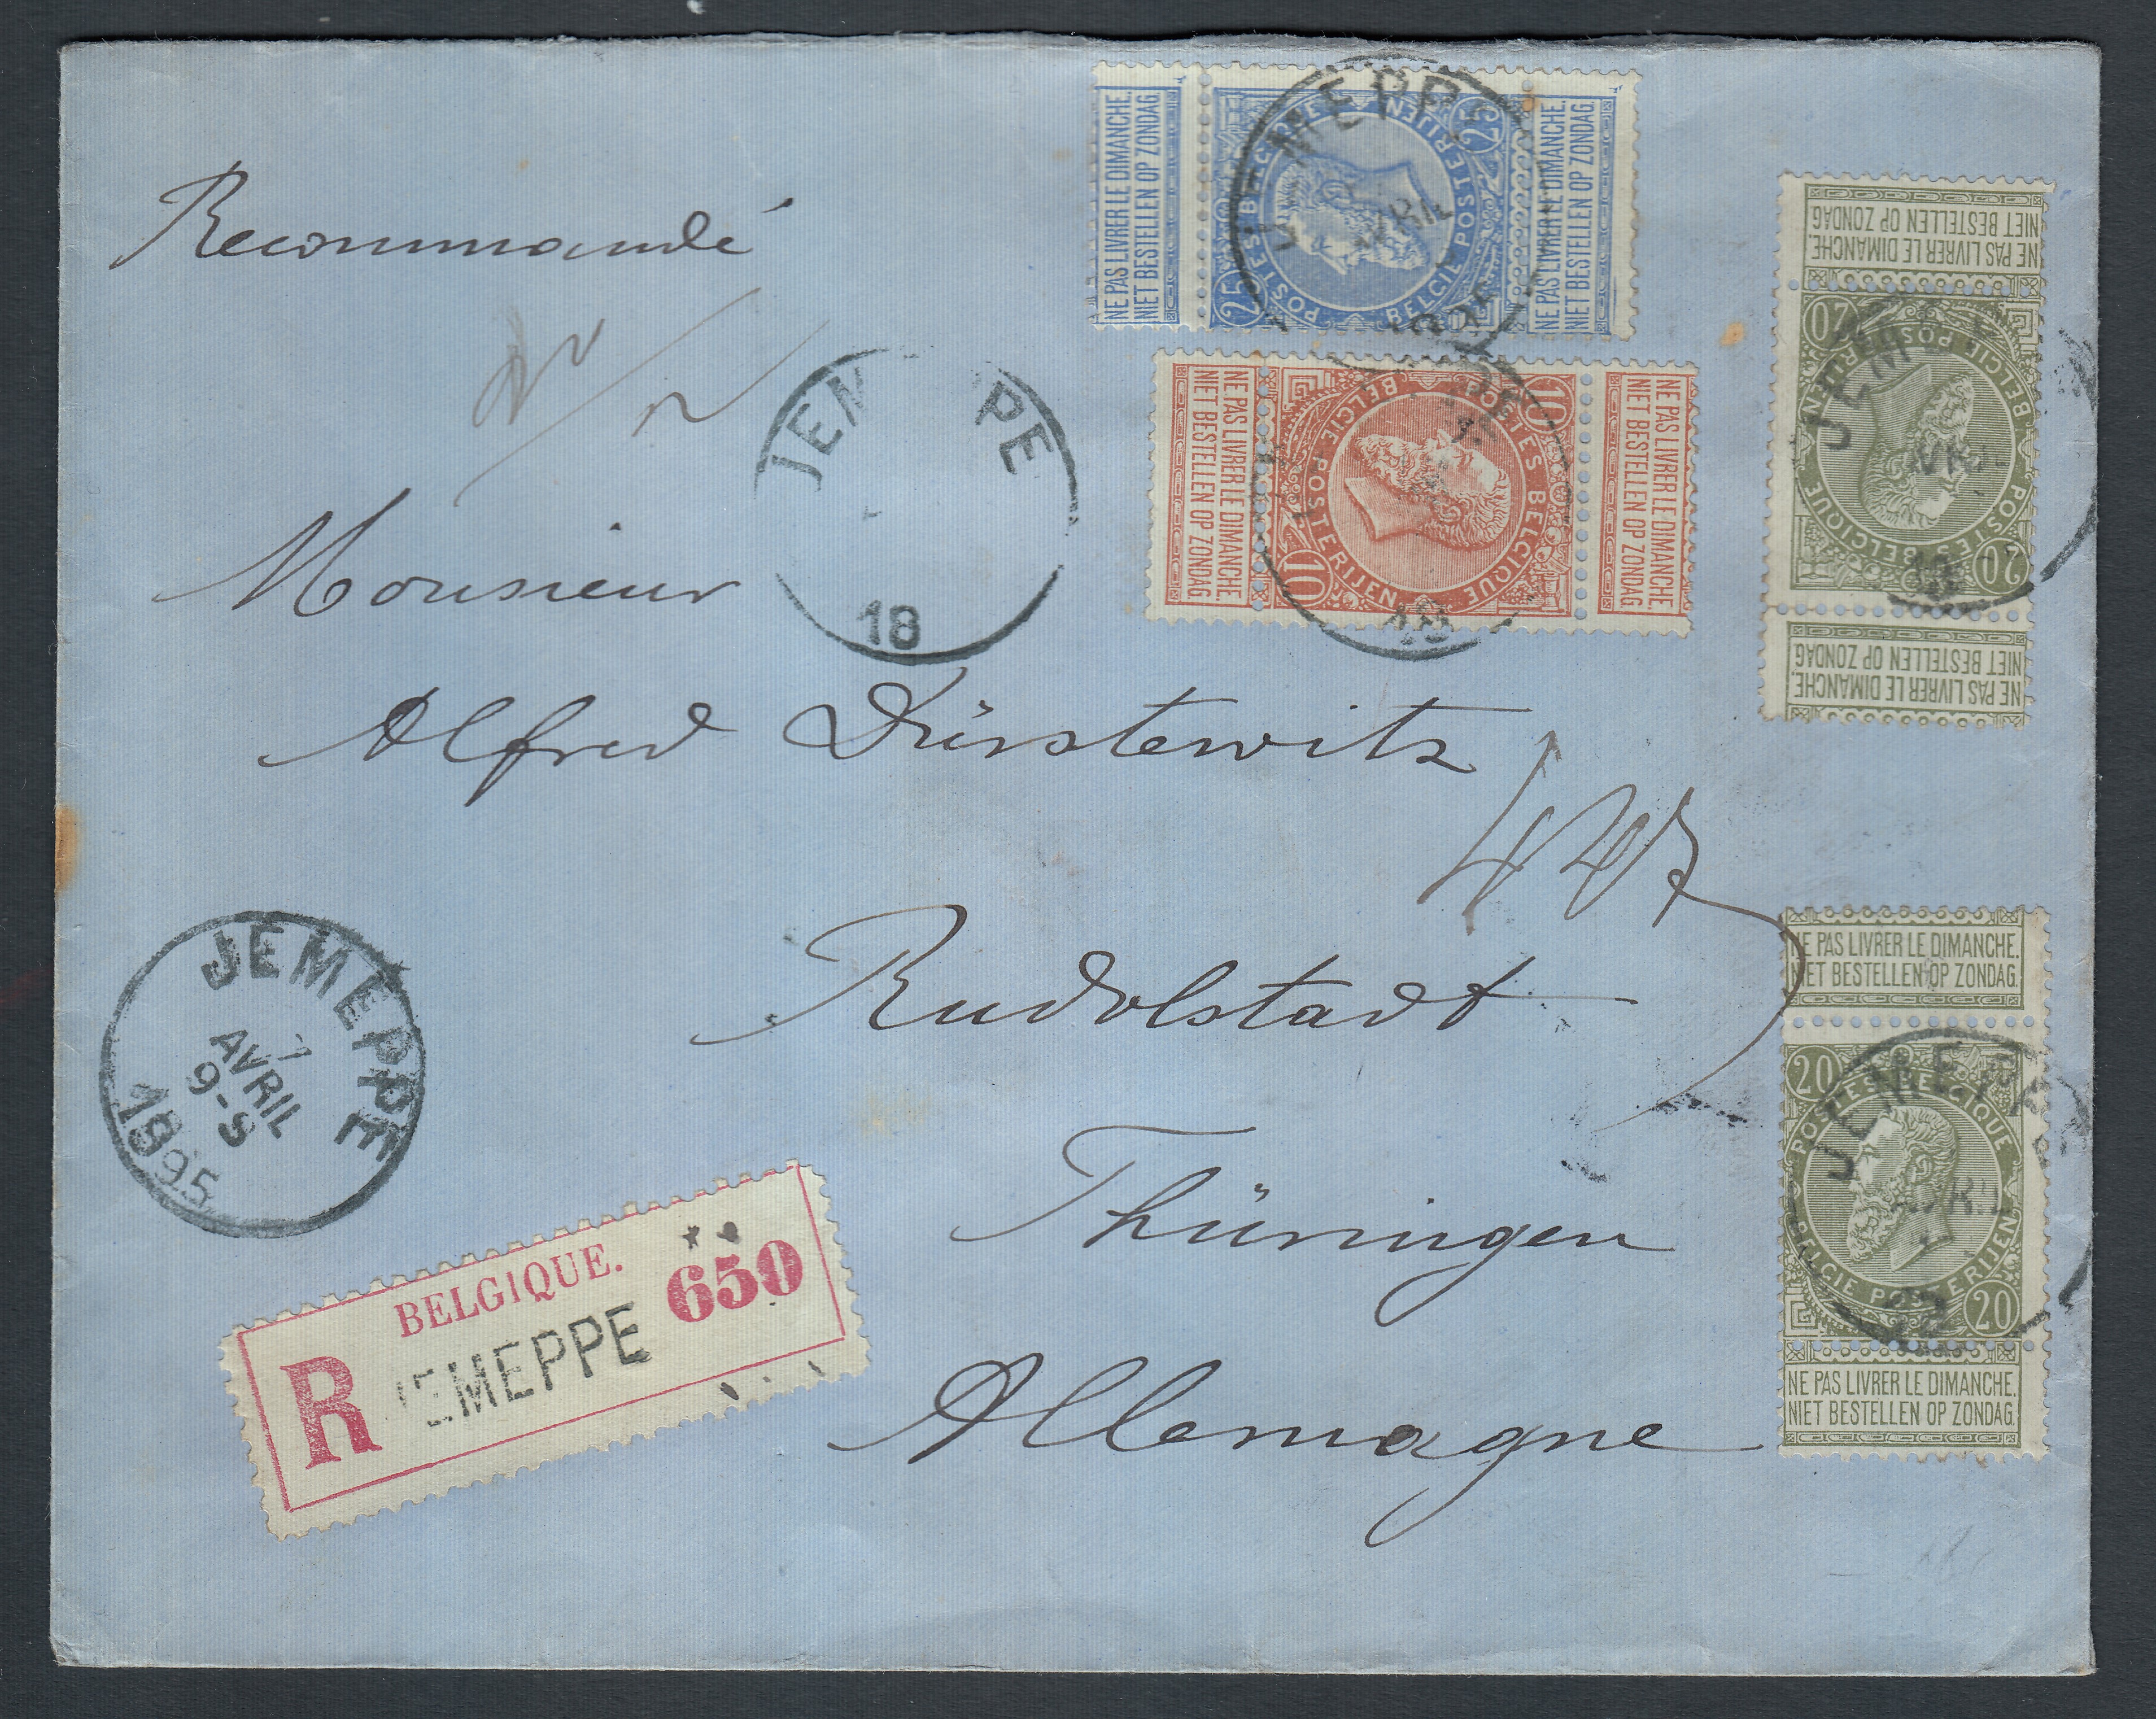 Recommandé
NE PAS LIVRER LE DIMANCHE.
NIET BESTELLEN OP ZONDAG
25 POSTES BELGIQUE 25
BELGIE POSTERIJEN
NE PAS LIVRER LE DIMANCHE.
NIET BESTELLEN OP ZONDAG
JEMEPPE
AVRIL
NE PAS LIVRER LE DIMANCHE.
NIET BESTELLEN OP ZONDAG
10 POSTES BELGIQUE 10
BELGIE POSTERIJEN
NE PAS LIVRER LE DIMANCHE.
NIET BESTELLEN OP ZONDAG
18
NE PAS LIVRER LE DIMANCHE.
NIET BESTELLEN OP ZONDAG
20 POSTES BELGIQUE 20
BELGIE POSTERIJEN
NE PAS LIVRER LE DIMANCHE.
NIET BESTELLEN OP ZONDAG
JEM
AVRIL
18
JEM PPE
18
Monsieur
Alfred Dürstewitz
Rudolstadt
Thüringen
Allemagne
JEMEPPE
7
AVRIL
9-S
1895
BELGIQUE. 650
R JEMEPPE
NE PAS LIVRER LE DIMANCHE.
NIET BESTELLEN OP ZONDAG.
20 POSTES BELGIQUE
BELGIE POSTERIJEN 20
NE PAS LIVRER LE DIMANCHE.
NIET BESTELLEN OP ZONDAG.
JEMEPP